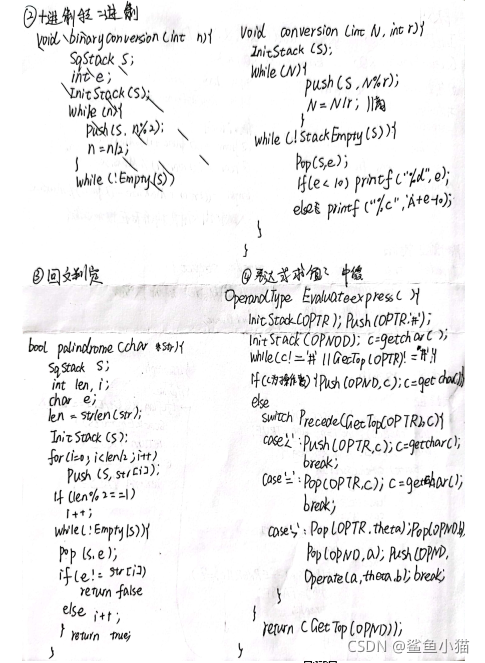 ②十进制转二进制
void binaryConversion(int n){
SqStack S;
int e;
InitStack(S);
while(n){
push(S, n%2);
n=n/2;
}
while(!Empty(S))
void conversion(int N, int r){
InitStack(S);
while(N){
push(S, N%r);
N=N/r; //
}
while(!StackEmpty(S)){
Pop(S,e);
if(e<10) printf("%d",e);
else printf("%c",'A'+e-10);
}
}
③回文判定
bool palindrome(char *str){
SqStack S;
int len, i;
char e;
len = strlen(str);
InitStack(S);
for(i=0; i<len/2; i++)
Push(S, str[i]);
if(len%2==1)
i++;
while(!Empty(S)){
pop(s,e);
if(e!=str[i])
return false
else i++;
}
return true;
}
④表达式求值：中缀
OperandType Evaluateexpress( ){
InitStack(OPTR); Push(OPTR.'#');
InitStack(OPNOD); c=getchar();
while(c!='#'||GetTop(OPTR)!='#'){
if(c为操作数){Push(OPND,c); c=getchar()}
else
switch Precede(GetTop(OPTR),c){
case'<': Push(OPTR,c); c=getchar();
break;
case'=': Pop(OPTR,c); c=getchar();
break;
case'>': Pop(OPTR,theta);Pop(OPND,b),
Pop(OPND,a); Push(OPND,
Operate(a,theta,b); break;
}
}
return (GetTop(OPND));
}
CSDN @鲨鱼小猫